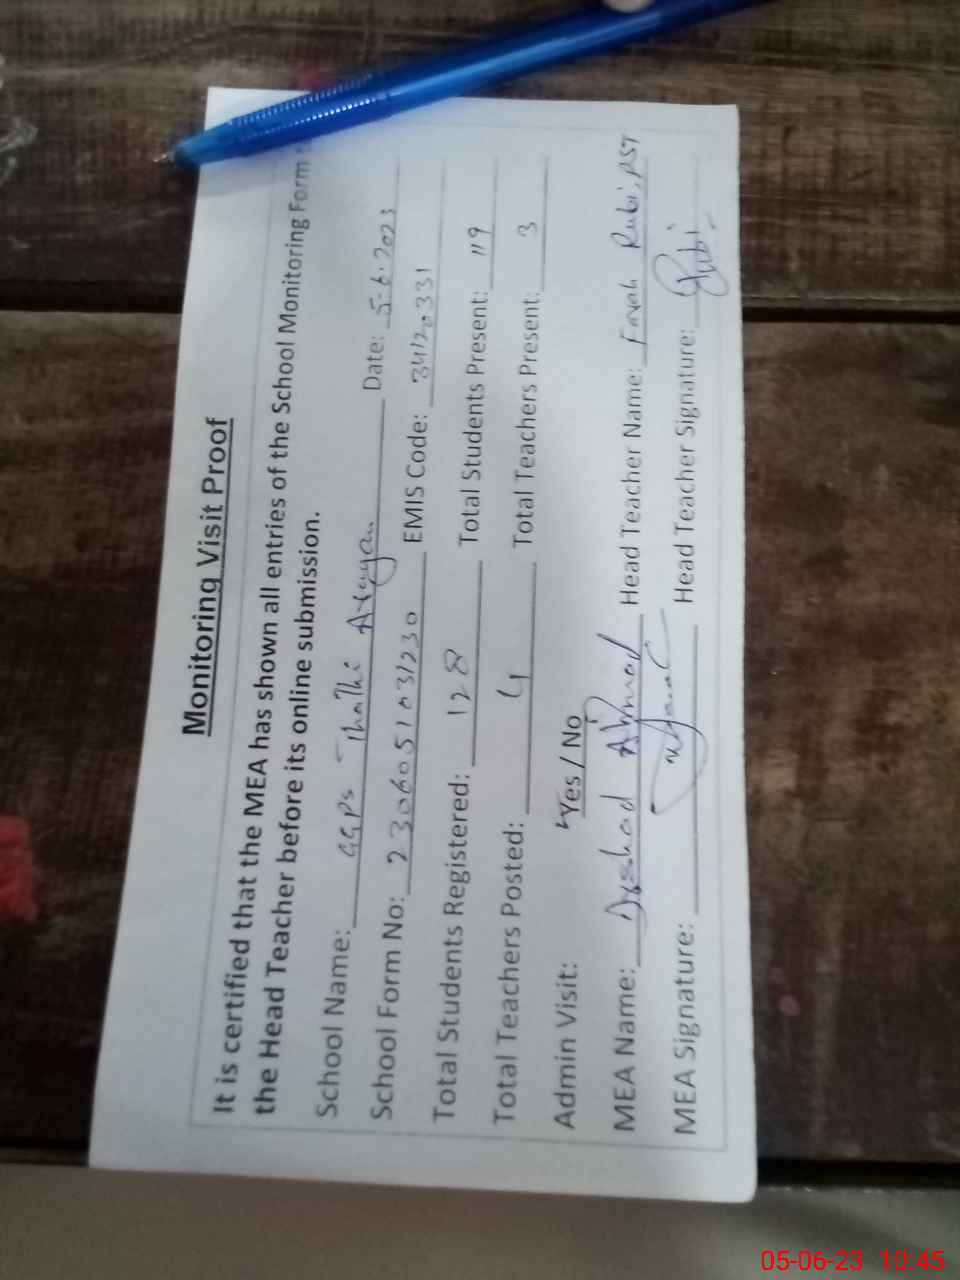 Monitoring Visit Proof
It is certified that the MEA has shown all entries of the School Monitoring Form
the Head Teacher before its online submission.
School Name: GGPS Thathi Arayan Date: 5-6-2023
School Form No: 2306051031230 EMIS Code: 34120331
Total Students Registered: 128 Total Students Present: 119
Total Teachers Posted: 4 Total Teachers Present: 3
Admin Visit: Yes / No
MEA Name: Arshad Ahmad Head Teacher Name: Farah Rubi, PST
MEA Signature: Head Teacher Signature: Rubi
05-06-23 10:45